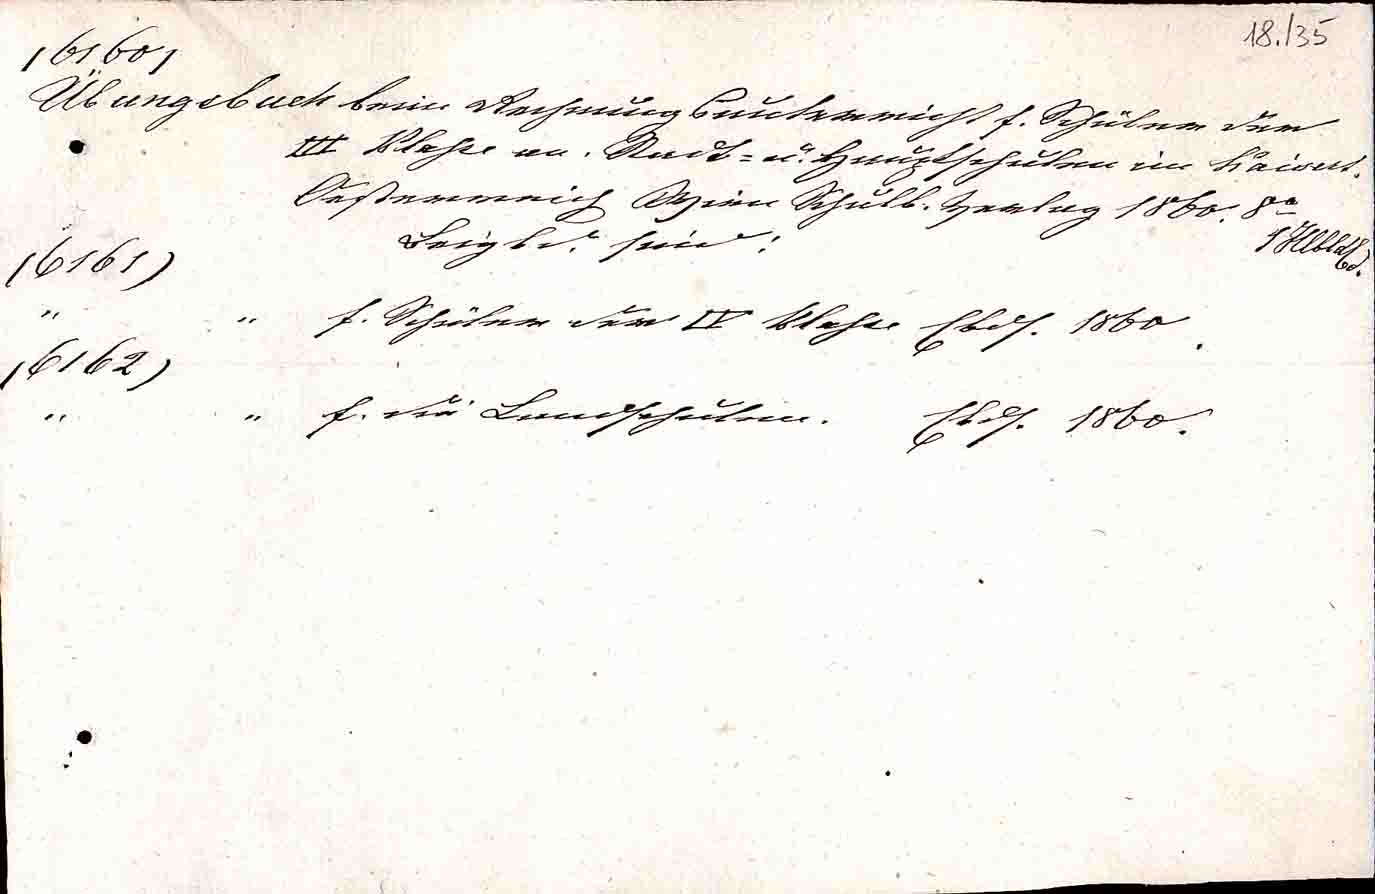 18./35
(6160)
Übungsbuch beim Rechnungsunterricht f. Schüler der
III Klasse an. Stadt= u. Hauptschulen im Kaisert.
Oesterreich Wien Schulb. Verlag 1860. 8°
Beigbd. sind: 1 Hlbldbd.
(6161)
" " f. Schüler der IV Klasse Ebds. 1860.
(6162)
" " f. die Landschulen. Ebds. 1860.